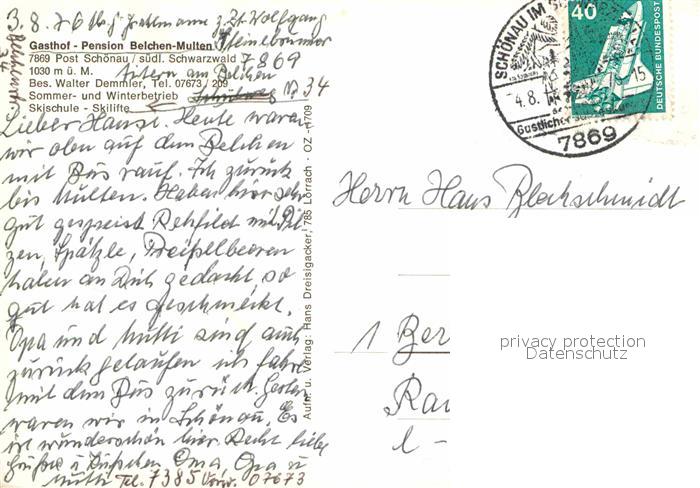 3.8.76 Wolfgang
Steinebrunner
Gasthof - Pension Belchen-Multen
7869 Post Schönau / südl. Schwarzwald 7869
1030 m ü. M. Aitern am Belchen
Bes. Walter Demmler, Tel. 07673 / 209
Sommer- und Winterbetrieb Nr 34
Skischule - Skilifte
34
Lieber Hansi. Heute waren
wir oben auf dem Belchen
mit Bus rauf. Ich zurück
bis Multen. Haben hier sehr
gut gespeist Rehfilet mit Pil-
zen, Spätzle, Preißelbeeren
haben an Dich gedacht, so
gut hat es geschmeckt.
Opa und Mutti sind auch
zurück gelaufen ich fahre
mit dem Bus zurück. Gestern
waren wir in Schönau. Es
ist wunderschön hier. Recht liebe
Grüße u Küßchen Oma, Opa u
Mutti Tel. 7385 Vorw. 07673
Aufn. u. Verlag: Hans Dreisigacker, 785 Lörrach - OZ - 1709
SCHÖNAU IM
4.8.
15
7869
40
DEUTSCHE BUNDESPOST
Herrn Hans Blechschmidt
1 Ber
privacy protection
Datenschutz